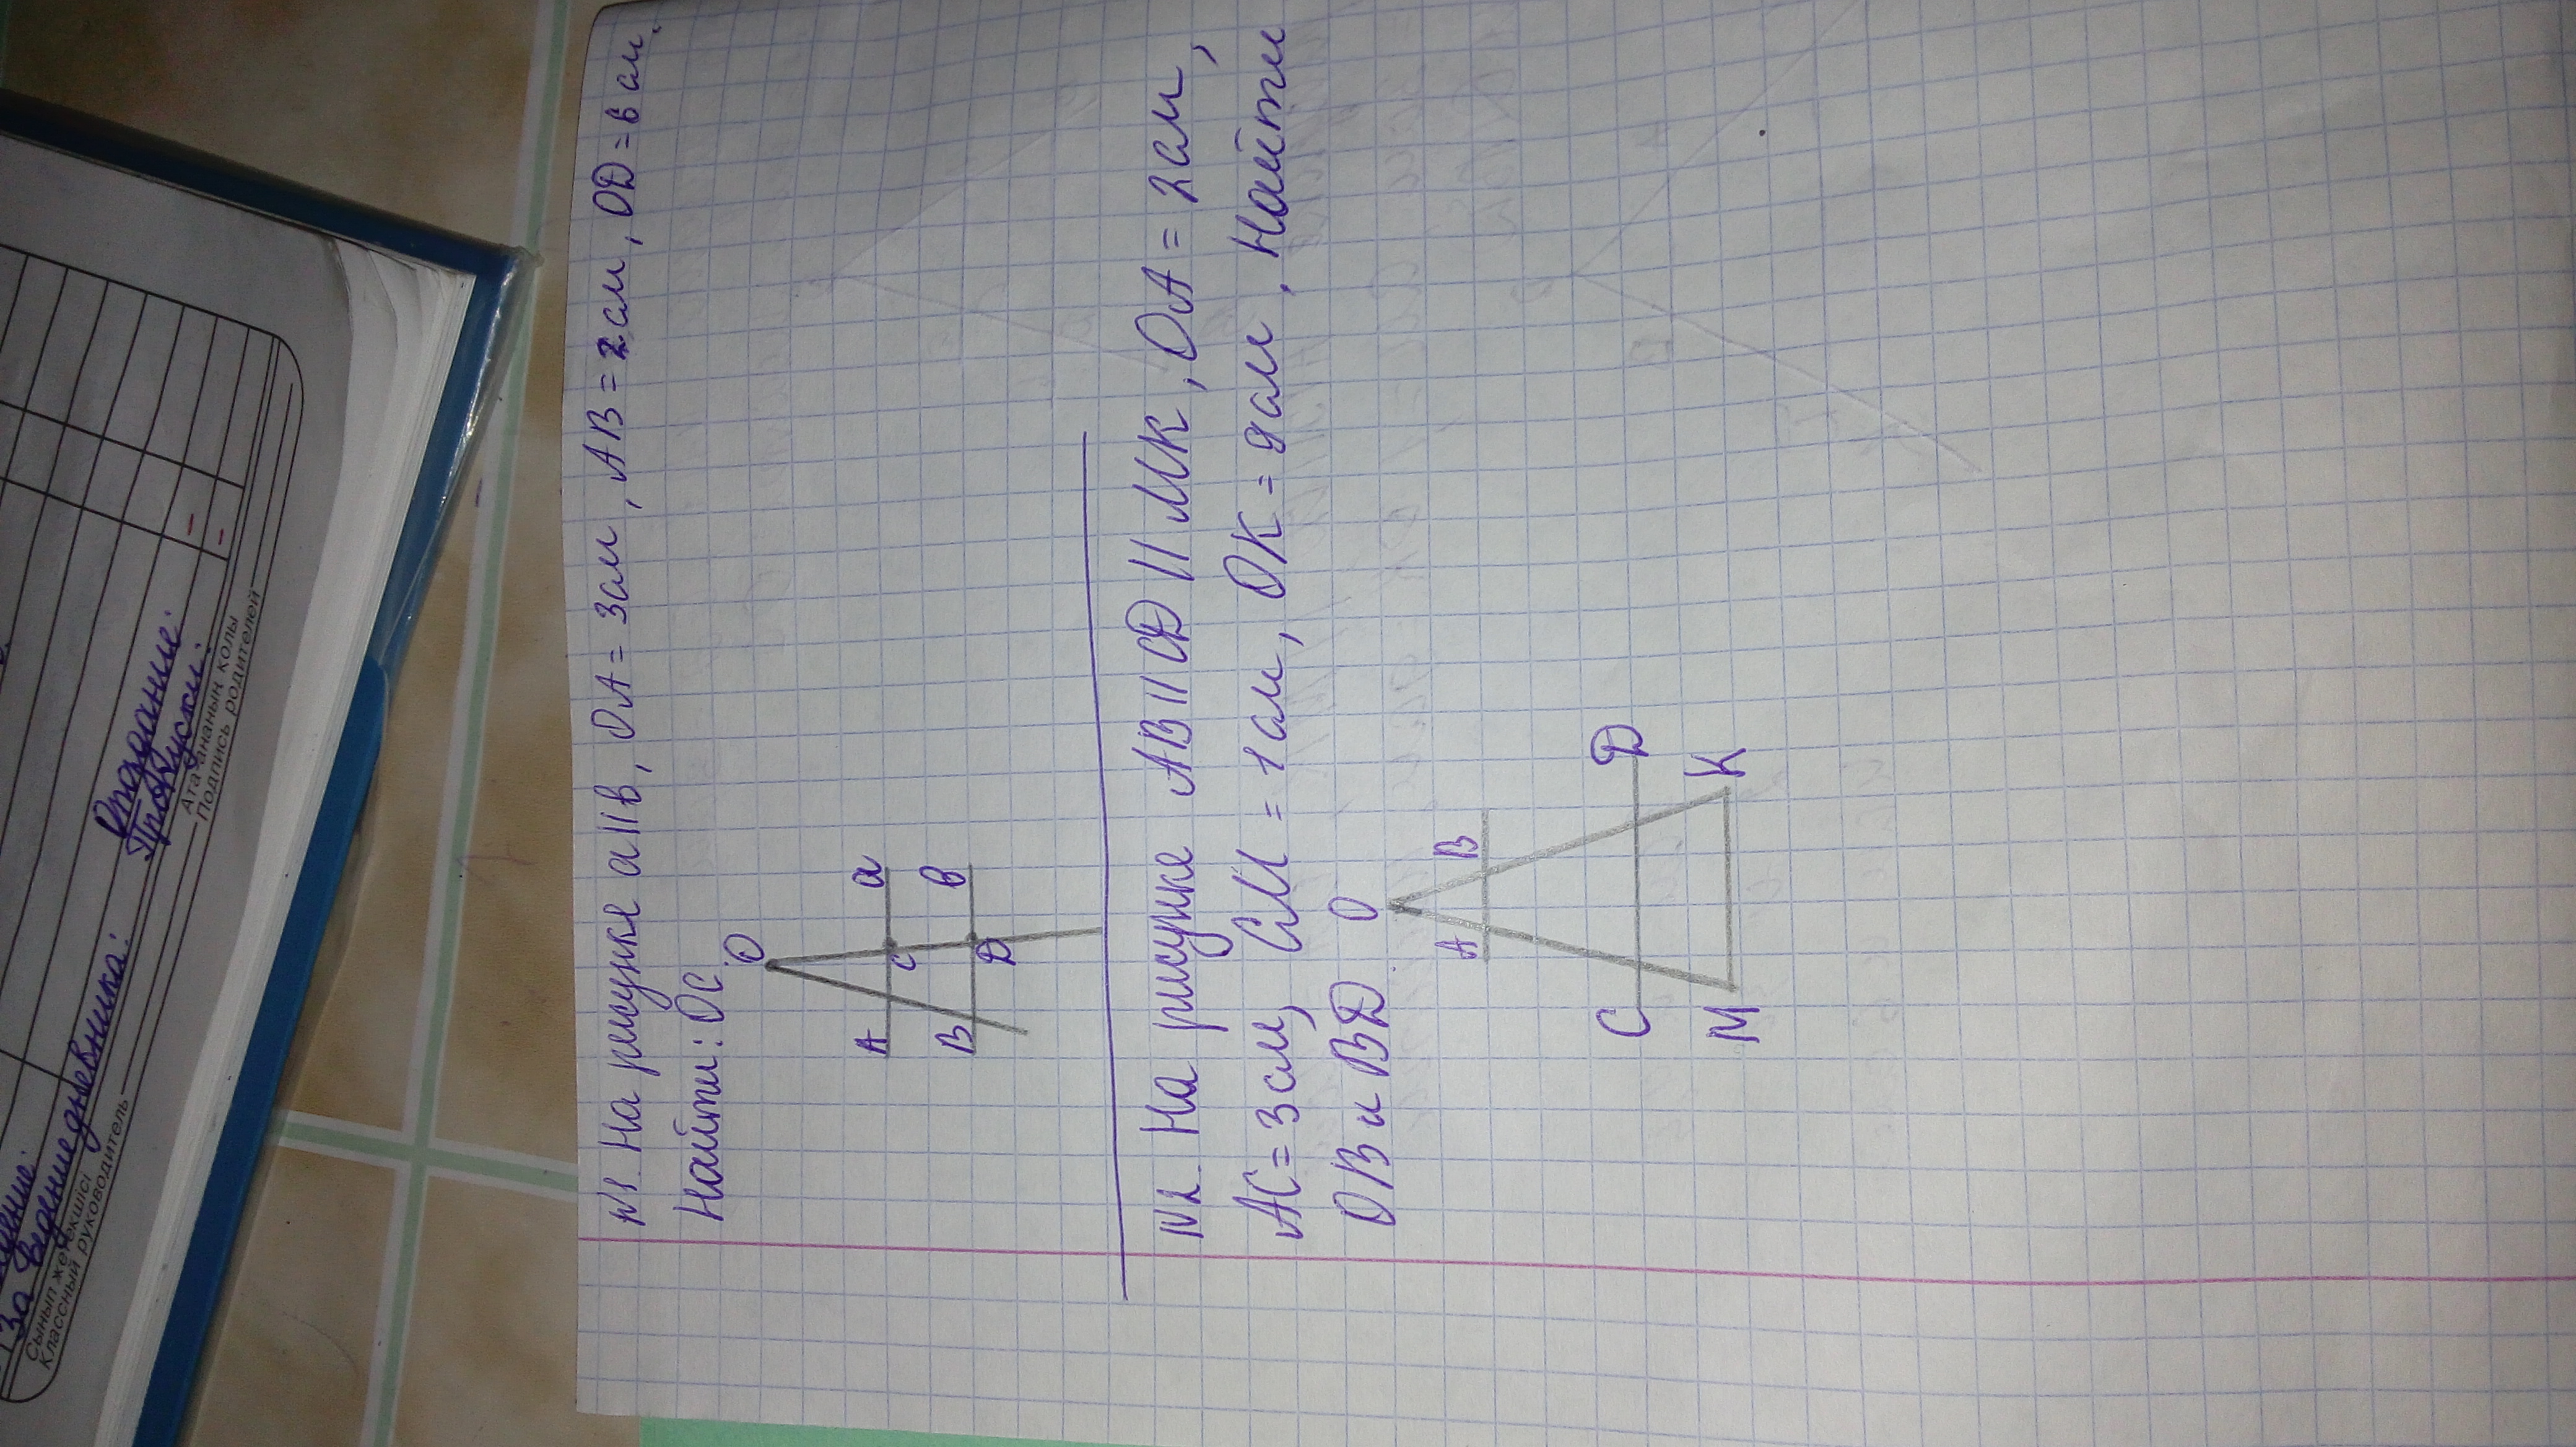 За ведение дневника:
Опоздание:
Пропуски:
Сынып жетекшісі
Классный руководитель
Ата-ананың қолы
Подпись родителей
№1. На рисунке a||в, OA = 3см, AB = 2см, OD = 6 см.
Найти: OC
O
A a
C
B в
D
№2. На рисунке AB || CD || MK, OA = 2см,
AC = 3см, CM = 1см, OK = 9см, Найти
OB и BD
O
A B
C D
M K